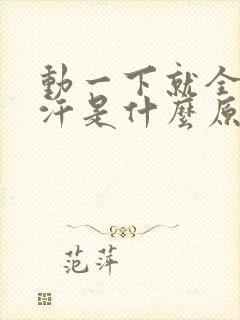 動一下就全
汗是什麼原
范萍